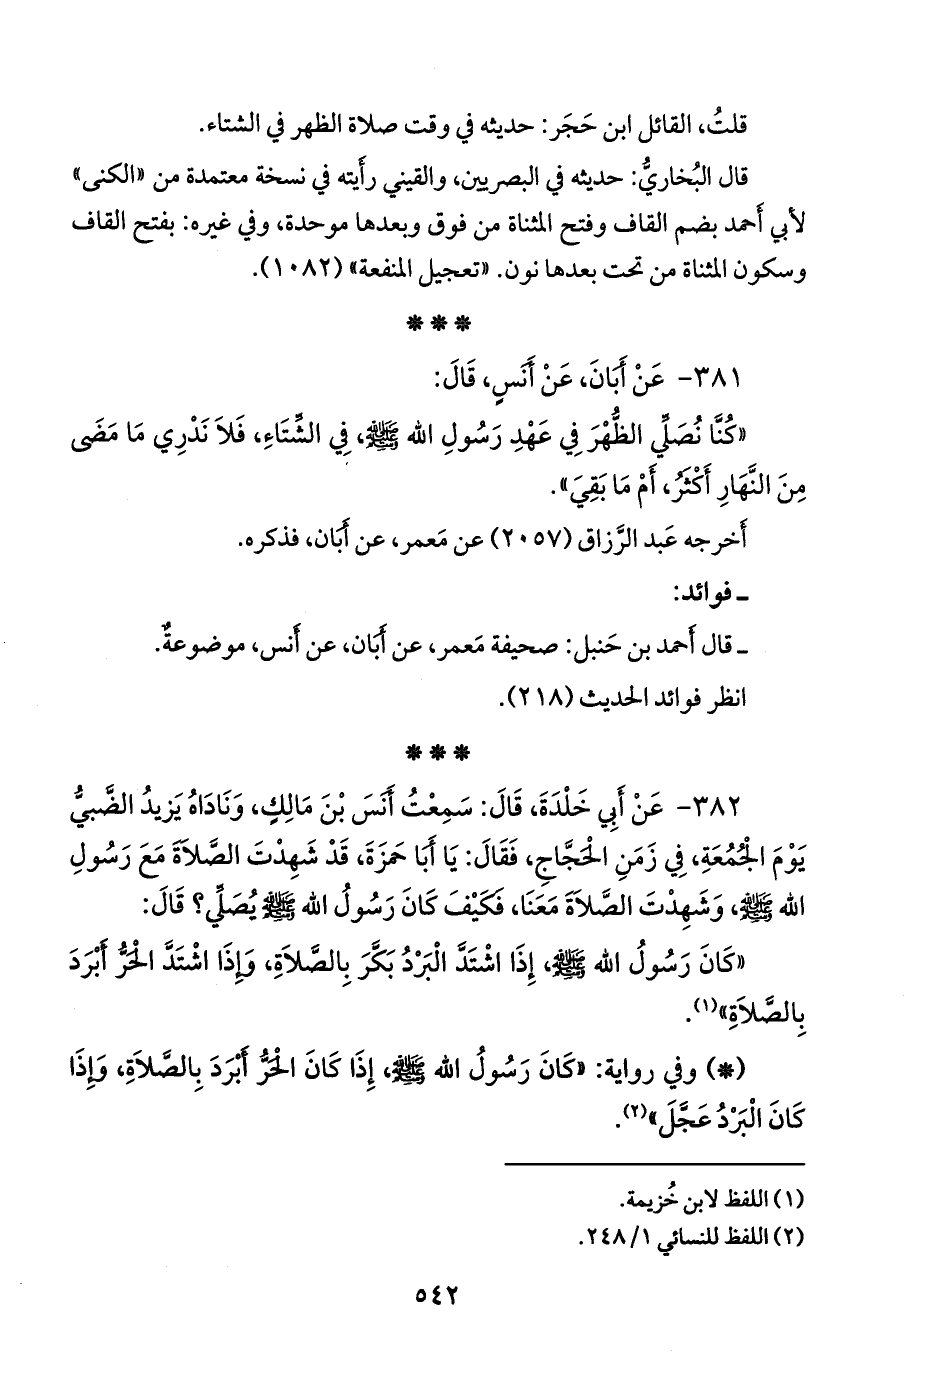 قلتُ، القائل ابن حَجَر: حديثه في وقت صلاة الظهر في الشتاء.
قال البُخاريُّ: حديثه في البصريين، والقيني رأَيته في نسخة معتمدة من «الكنى»
لأبي أَحمد بضم القاف وفتح المثناة من فوق وبعدها موحدة، وفي غيره: بفتح القاف
وسكون المثناة من تحت بعدها نون. «تعجيل المنفعة» (١٠٨٢).
* * *
٣٨١- عَنْ أَبَانَ، عَنْ أَنَسٍ، قَالَ:
«كُنَّا نُصَلِّي الظُّهْرَ فِي عَهْدِ رَسُولِ الله ﷺ، فِي الشِّتَاءِ، فَلاَ نَدْرِي مَا مَضَى
مِنَ النَّهَارِ أَكْثَرُ، أَمْ مَا بَقِيَ».
أَخرجه عَبد الرَّزاق (٢٠٥٧) عن مَعمر، عن أَبَان، فذكره.
ـ فوائد:
ـ قال أَحمد بن حَنبل: صحيفة مَعمر، عن أَبَان، عن أَنس، موضوعةٌ.
انظر فوائد الحديث (٢١٨).
* * *
٣٨٢- عَنْ أَبِي خَلْدَةَ، قَالَ: سَمِعْتُ أَنَسَ بْنَ مَالِكٍ، وَنَادَاهُ يَزِيدُ الضَّبِيُّ
يَوْمَ الْجُمُعَةِ، فِي زَمَنِ الْحَجَّاجِ، فَقَالَ: يَا أَبَا حَمْزَةَ، قَدْ شَهِدْتَ الصَّلاَةَ مَعَ رَسُولِ
الله ﷺ، وَشَهِدْتَ الصَّلاَةَ مَعَنَا، فَكَيْفَ كَانَ رَسُولُ الله ﷺ يُصَلِّي؟ قَالَ:
«كَانَ رَسُولُ الله ﷺ، إِذَا اشْتَدَّ الْبَرْدُ بَكَّرَ بِالصَّلاَةِ، وَإِذَا اشْتَدَّ الْحَرُّ أَبْرَدَ
بِالصَّلاَةِ»(١).
(*) وفي رواية: «كَانَ رَسُولُ الله ﷺ، إِذَا كَانَ الْحَرُّ أَبْرَدَ بِالصَّلاَةِ، وَإِذَا
كَانَ الْبَرْدُ عَجَّلَ»(٢).
(١) اللفظ لابن خُزيمة.
(٢) اللفظ للنسائي ١/ ٢٤٨.
٥٤٢